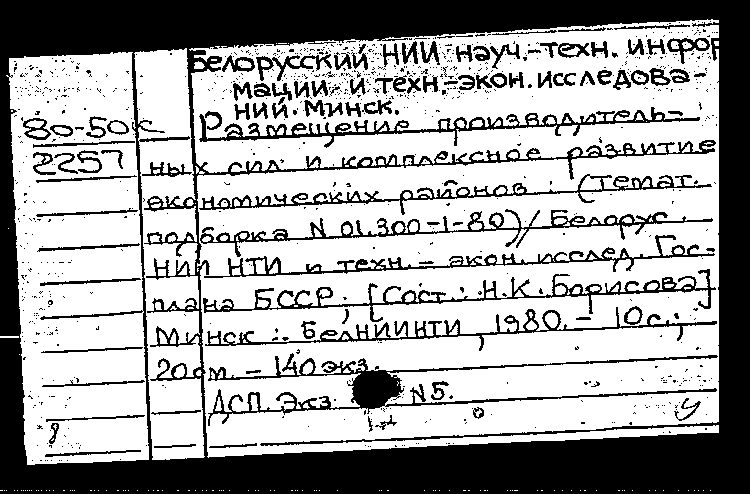 Белорусский НИИ науч.-техн. инфор
мации и техн.-экон. исследова-
ний. Минск.
80-50к Размещение производитель-
2257 ных сил и комплексное развитие
экономических районов : (Темат.
подборка N 01.300-1-80) / Белорус.
НИИ НТИ и техн. - экон. исслед. Гос-
плана БССР ; [Сост.: Н.К. Борисова]
Минск : БелНИИНТИ, 1980. - 10 с.;
20 см. - 140 экз.
ДСП. Экз. N5.